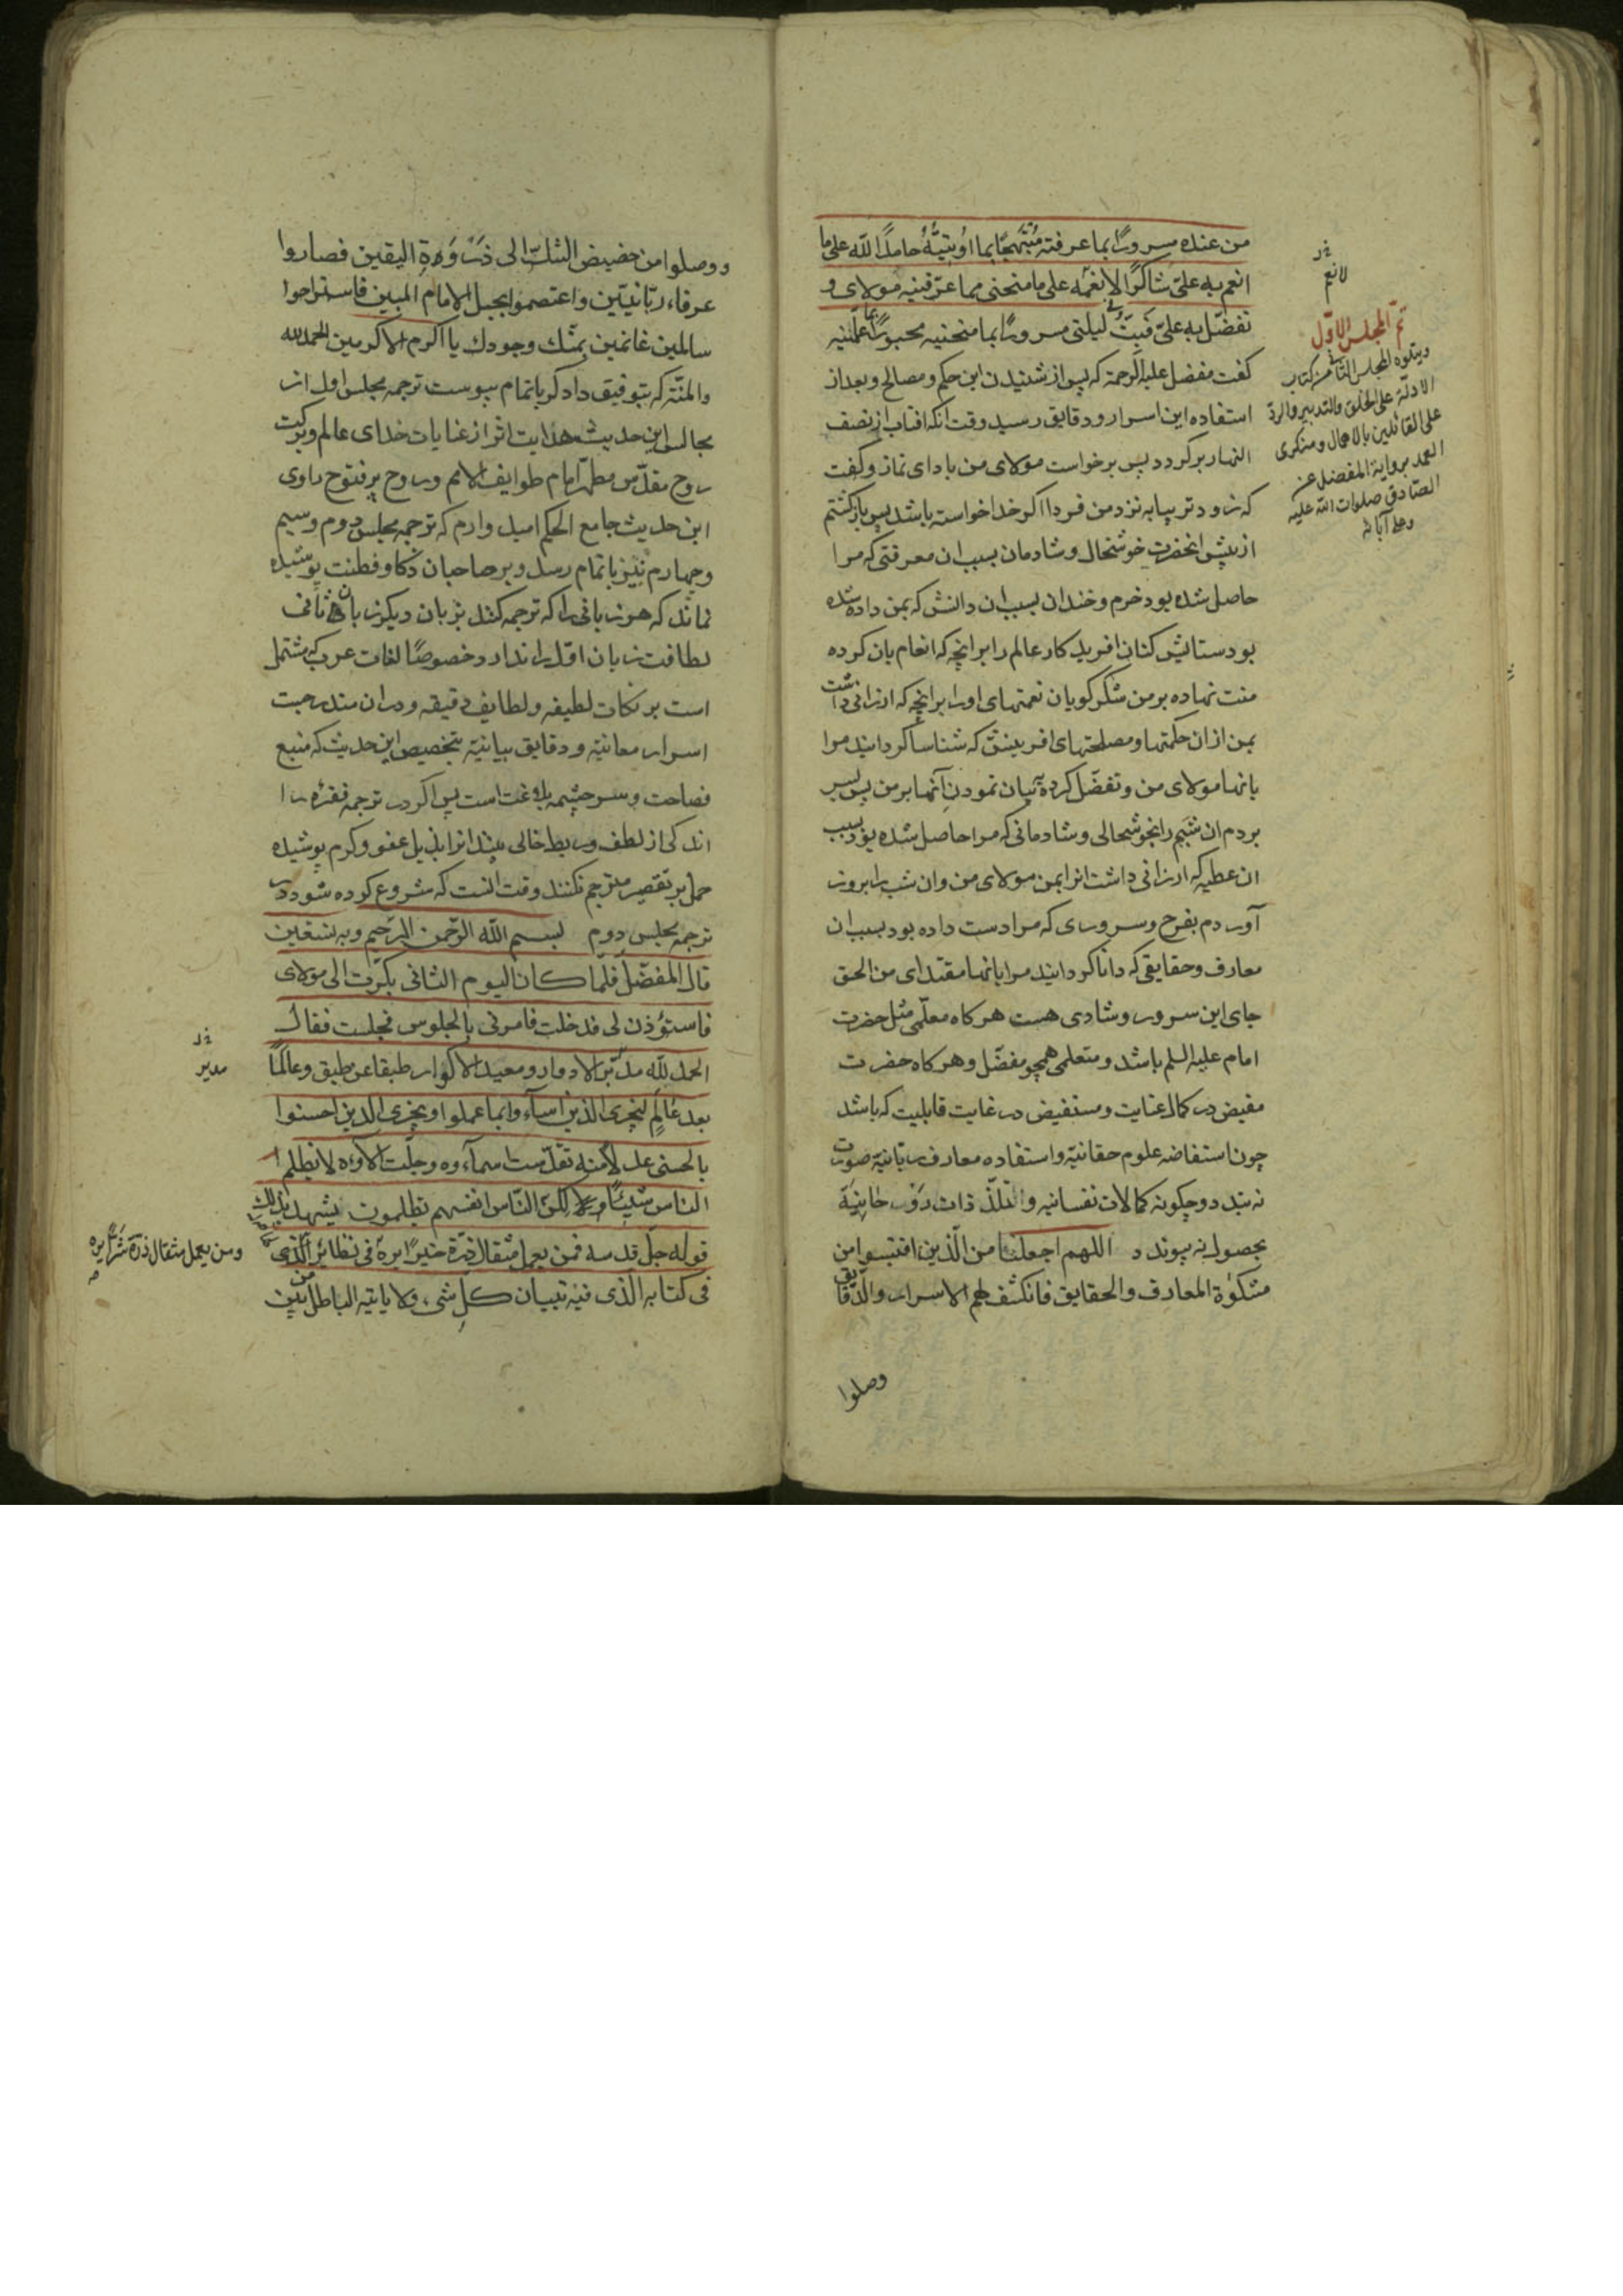 من عنده مسرورًا بما عرفته مُبْتَهجًا بما اُوتيتُهُ حامدًا لله على ما
انعم به علىّ شاكرًا لانعُمه على ما منحنى مما عرّفنيه مولاى و
تفضّل به علىّ فَبِتّ فى ليلتى مسرورًا بما منحنيه محبورًا بما علّمنيه
كفت مفضل عليه الرحمة كه پس از شنيدن اين حكم و مصالح و بعد از
استفاده اين اسرار و دقايق رسيد وقت انكه افتاب از نصف
النهار بركردد پس برخواست مولاى من باداى نماز و كفت
كه زودتر بيا به نزد من فردا اكر خدا خواسته باشد پس بازكشتم
از پيش انحضرت خوشحال و شادمان بسبب ان معرفتى كه مرا
حاصل شده بود خرم و خندان بسبب ان دانش كه بمن داده شده
بود ستايش كنان افريدكار عالم را بر انچه كه انعام بان كرده
منت نهاده بر من شكركويان نعمتهاى او را بر انچه كه ارزانى داشت
بمن از ان حكمتها و مصلحتهاى افرينش كه شناسا كردانيد مرا
بانها مولاى من و تفضّل كرده به بيان نمودن آنها بر من پس بسر
بردم ان شبم را بخوشحالى و شادمانى كه مرا حاصل شده بود بسبب
ان عطيه كه ارزانى داشت انرا بمن مولاى من و ان شب را بروز
آوردم بفرح و سرورى كه مرا دست داده بود بسبب ان
معارف و حقايقى كه دانا كردانيد مرا بانها مقتداى من الحق
جاى اين سرور و شادى هست هر كاه معلّمى مثل حضرت
امام عليه السلم باشد و متعلمى همچو مفضّل و هر كاه حضرت
مفيض در كمال عنايت و مستفيض در غايت قابليت كه باشد
چون استفاضه علوم حقانيّه و استفاده معارف ربانيّه صورت
نه بندد و چكونه كمالات نفسانيه و تلذّذات رَوْحانِيَّة
بحصول نه پيوندد اللهم اجعلنا من الّذين اقتبسوا من
مشكوٰة المعارف و الحقايق فانكشف لهم الاسرار و الدّقايق
وصلوا
لانعم
تمّ المجلس الاوّل
ويتلوه المجلس الثانى من كتاب
الادلّة على الخلق والتدبير والردّ
على القائلين بالاهمال ومنكرى
العمد برواية المفضل عن
الصّادق صلوات الله عليه
وعلى آبائه
ووصلوا من حضيض الشكّ الى ذَرْوَةِ اليقين فصاروا
عرفاء ربّانيّين واعتصموا بحبل الامام المبين فاستراحوا
سالمين غانمين بمنّك وجودك يا اكرم الاكرمين الحمد لله
والمنّة كه بتوفيق دادكر باتمام پيوست ترجمه مجلس اول از
مجالس اين حديث هدايت اثر از عنايات خداى عالم و بركت
روح مقدّس مطهّر امام طوايف الامم و روح پر فتوح راوى
اين حديث جامع الحكم اميد وارم كه ترجمه مجلس دوم و سيم
و چهارم نيز باتمام رسد و بر صاحبان ذكا و فطنت پوشيده
نماند كه هر زبانى را كه ترجمه كنند بزبان ديكر زبان ثانى
لطافت زبان اوّل را ندارد خصوصًا لغات عرب كه مشتمل
است بر نكات لطيفه و لطايف دقيقه و در ان مندرجست
اسرار معانيّه و دقايق بيانيّه بتخصيص اين حديث كه منبع
فصاحت و سرچشمه بلاغت است پس اكر در ترجمه فقره را
اندكى از لطف و ربط خالى بيند انرا بذيل عفو و كرم پوشيده
حمل بر تقصير مترجم نكنند وقت انست كه شروع كرده شود در
ترجمه مجلس دوم بسم الله الرّحمن الرّحيم وبه نستعين
قال المفضّل فلمّا كان اليوم الثانى بكّرت الى مولاى
فاستؤذن لى فدخلت فامرنى بالجلوس فجلست فقال
الحمد لله مدبّر الادوار ومعيد الاكوار طبقا عن طبق وعالمًا
بعد عَالَمٍ ليجزى الذين اسآءوا بما عملوا ويجزى الذين احسنوا
بالحسنى عدلًا منه تقدّست اسمآءوه وجلّت الآوءه لا يظلم
الناس شيئًا ولكنّ النّاس انفسهم يظلمون يشهد بذلك
قوله جلّ قدسه فمن يعمل مثقال ذرّة خيرًا يره فى نظائر الّذى
فى كتابه الّذى فيه تبيان كلّ شى ولا ياتيه الباطل من بين
مدير
ومن يعمل مثقال ذرّة شرًّا يره